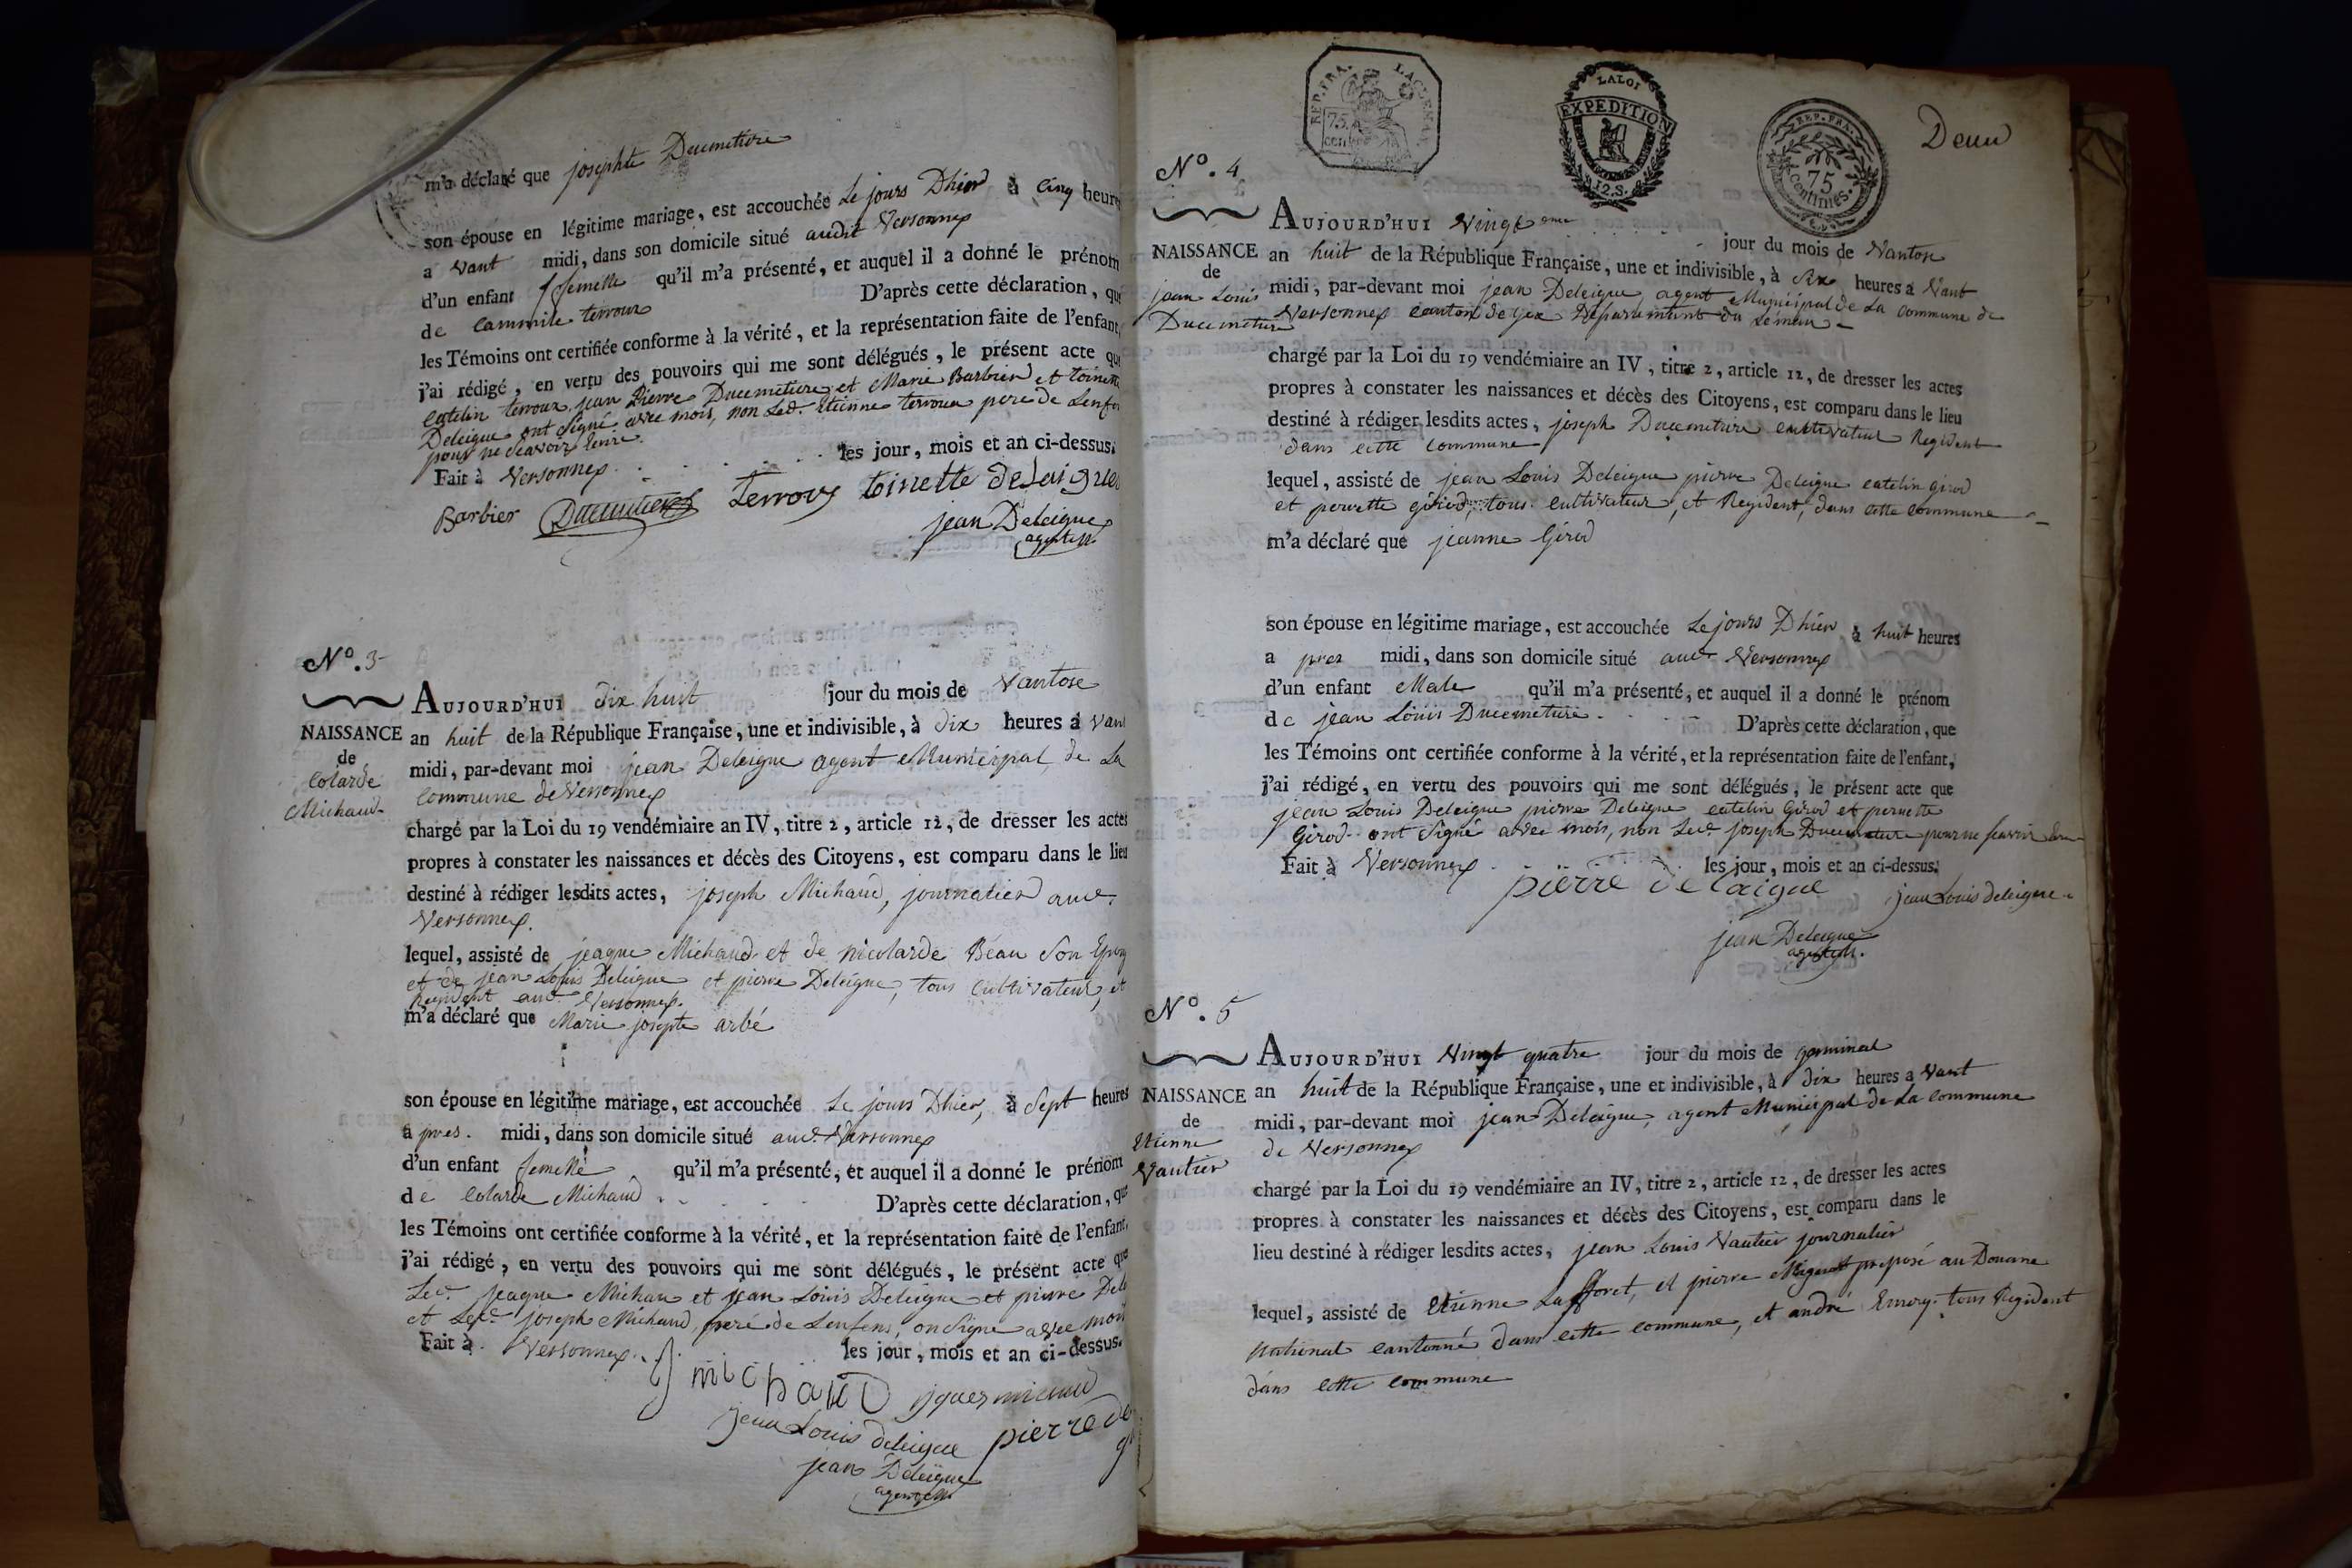 m'a déclaré que josephte Ducimetiere
son épouse en légitime mariage, est accouchée Le jours Dhier à Cinq heure
a vant midi, dans son domicile situé audit Versonnex
d'un enfant femelle qu'il m'a présenté, et auquel il a donné le prénom
de Cammile terroux D'après cette déclaration, que
les Témoins ont certifiée conforme à la vérité, et la représentation faite de l'enfant,
j'ai rédigé, en vertu des pouvoirs qui me sont délégués, le présent acte que
Catelin terroux, jean Pierre Ducimetiere et Marie Barbier et toinette
Deleigue ont Signé avec mois, non Led. Etienne terroux pere de Lenfen
pour ne Scavoir
Fait à Versonnex les jour, mois et an ci-dessus.
Barbier Ducimetiere Terroux toinette deLaigue
jean Deleigue
agent M.
N°. 3
AUJOURD'HUI dix huit jour du mois de Vantose
NAISSANCE an huit de la République Française, une et indivisible, à dix heures à van
de
Colarde
Michaud
midi, par-devant moi jean Deleigue agent Municipal de La
Commune de Versonnex
chargé par la Loi du 19 vendémiaire an IV, titre 2, article 12, de dresser les actes
propres à constater les naissances et décès des Citoyens, est comparu dans le lieu
destiné à rédiger lesdits actes, joseph Michaud, journalier aud.
Versonnex.
lequel, assisté de jeaque Michaud et de nicolarde Beau Son Epou
et de jean Louis Deleigue et pierre Deleigue, tous Cultivateur, et
Regident aud. Versonnex.
m'a déclaré que Marie josepte arbé
son épouse en légitime mariage, est accouchée Le jours Dhier, à Sept heures
a pres. midi, dans son domicile situé aud. Versonnex
d'un enfant femelle qu'il m'a présenté, et auquel il a donné le prénom
de Colarde Michaud D'après cette déclaration, que
les Témoins ont certifiée conforme à la vérité, et la représentation faite de l'enfant,
j'ai rédigé, en vertu des pouvoirs qui me sont délégués, le présent acte que
Led. jeaque Michau et jean Louis Deleigue et pierre Dele
et Led. joseph Michaud, pere de Lenfens, on Signe avec mois
Fait à Versonnex. les jour, mois et an ci-dessus.
J michaud
jean Louis deleigue pierre de
jean Deleigue
agent M.
REP. FRA.
75.
cen
LA LOI
EXPEDITION
12.S.
REP. FRA.
75
centimes.
Deux
N°. 4
AUJOURD'HUI Vingt eme jour du mois de Vantose
NAISSANCE an huit de la République Française, une et indivisible, à Six heures a Vant
de
jean Louis
Ducimetiere
midi, par-devant moi jean Deleigue, agent Municipal de La Commune de
Versonnex canton de gex Departement du Léman
chargé par la Loi du 19 vendémiaire an IV, titre 2, article 12, de dresser les actes
propres à constater les naissances et décès des Citoyens, est comparu dans le lieu
destiné à rédiger lesdits actes, joseph Ducimetiere cultivateur Regident
dans cette Commune
lequel, assisté de jean Louis Deleigue pierre Deleigue catelin girod
et pernette girod, tous cultivateur, et Regident, dans cette commune
m'a déclaré que jeanne Girod
son épouse en légitime mariage, est accouchée Le jours Dhier à huit heures
a pres midi, dans son domicile situé aud. Versonnex
d'un enfant Male qu'il m'a présenté, et auquel il a donné le prénom
de jean Louis Ducimetiere D'après cette déclaration, que
les Témoins ont certifiée conforme à la vérité, et la représentation faite de l'enfant,
j'ai rédigé, en vertu des pouvoirs qui me sont délégués, le présent acte que
jean Louis Deleigue pierre Deleigue catelin Girod et pernette
Girod ont Signé avec mois, non Led. joseph Ducimetiere pour ne scavoir
Fait à Versonnex les jour, mois et an ci-dessus.
pierre delaigue jean Louis deleigue
jean Deleigue
agent M.
N°. 5
AUJOURD'HUI Vingt quatre jour du mois de germinal
NAISSANCE an huit de la République Française, une et indivisible, à dix heures a Vant
de
Etienne
Vautier
midi, par-devant moi jean Deleigue, agent Municipal de La Commune
de Versonnex
chargé par la Loi du 19 vendémiaire an IV, titre 2, article 12, de dresser les actes
propres à constater les naissances et décès des Citoyens, est comparu dans le
lieu destiné à rédiger lesdits actes, jean Louis Vautier journalier
lequel, assisté de Etienne Lafforet, et pierre preposé au Douane
National cantonné dans cette commune, et andré Emery. tous Regident
dans cette commune